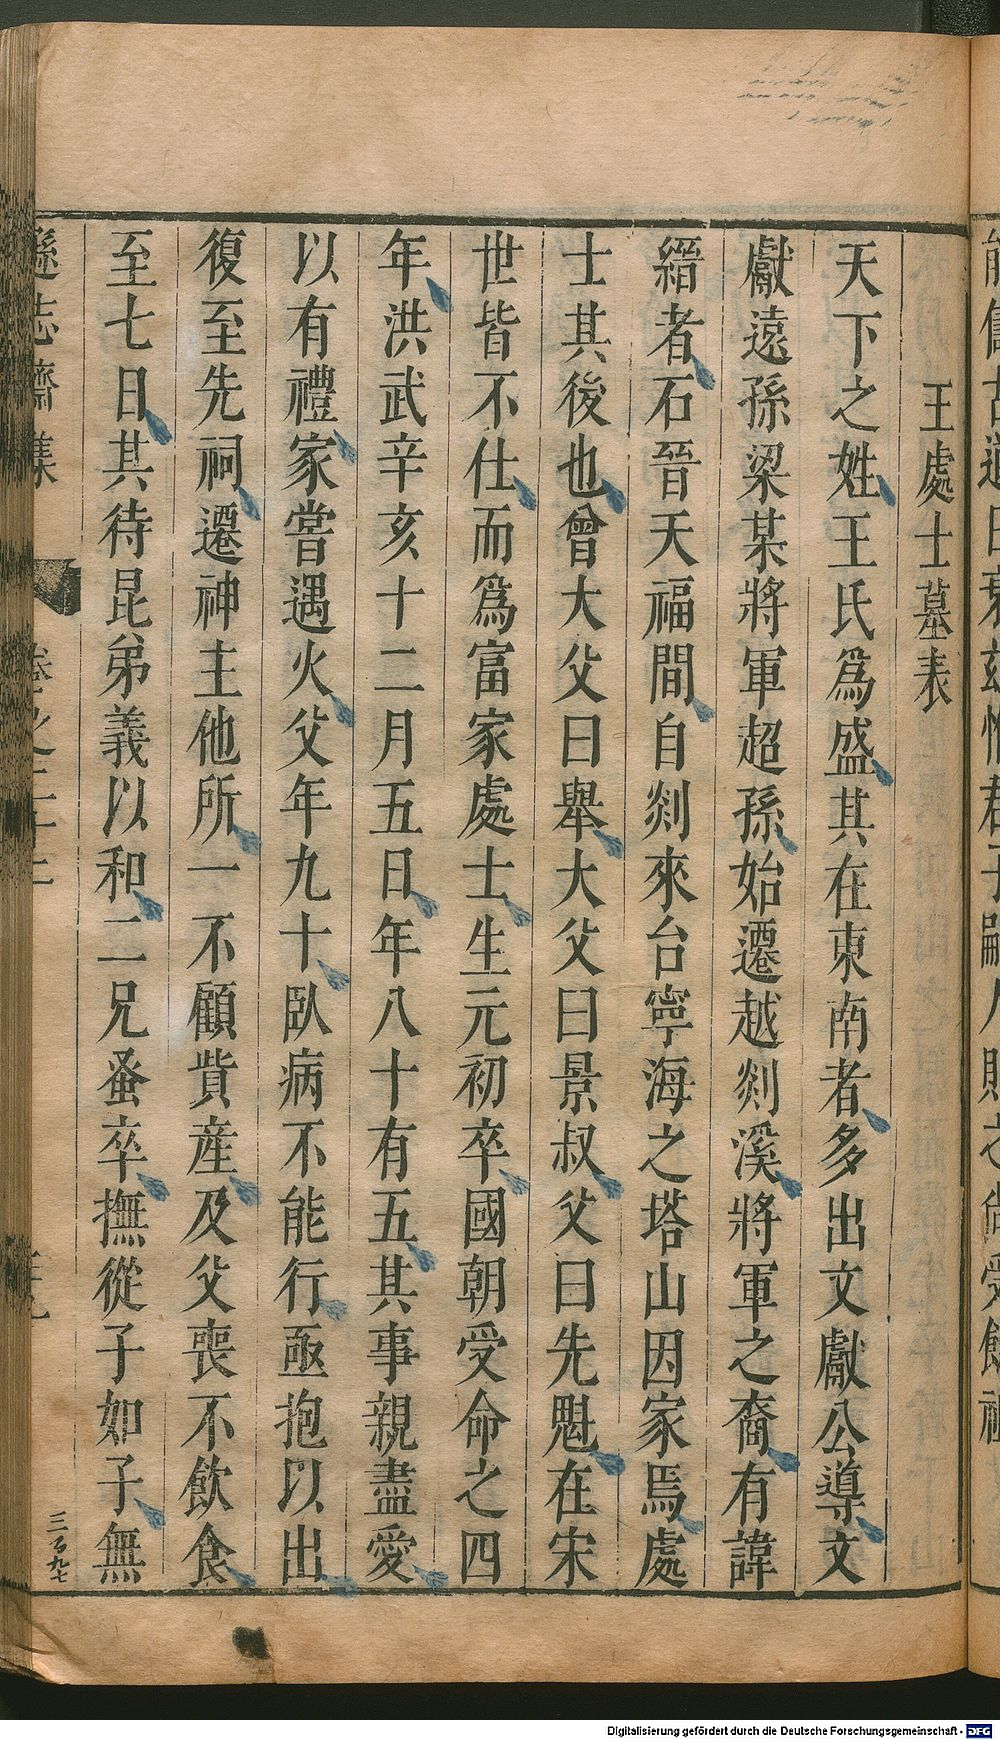 王處士墓表
天下之姓王氏爲盛其在東南者多出文獻公導文
獻遠孫梁某將軍超孫始遷越剡溪將軍之裔有諱
縉者石晉天福間自剡來台寧海之塔山因家焉處
士其後也曾大父曰舉大父曰景叔父曰先魁在宋
世皆不仕而爲富家處士生元初卒國朝受命之四
年洪武辛亥十二月五日年八十有五其事親盡愛
以有禮家嘗遇火父年九十臥病不能行亟抱以出
復至先祠遷神主他所一不顧貲産及父喪不飲食
至七日其待昆弟義以和二兄蚤卒撫從子如子無
遜志齋集
卷之二十二
三百九七
Digitalisierung gefördert durch die Deutsche Forschungsgemeinschaft - DFG